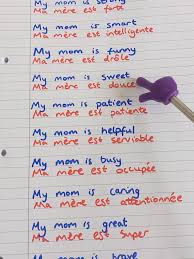 My mom is strong
Ma mère est forte
My mom is smart
Ma mère est intelligente
My mom is funny
Ma mère est drôle
My mom is sweet
Ma mère est douce
My mom is patient
Ma mère est patiente
My mom is helpful
Ma mère est serviable
My mom is busy
Ma mère est occupée
My mom is caring
Ma mère est attentionnée
My mom is great
Ma mère est super
My mom is brave